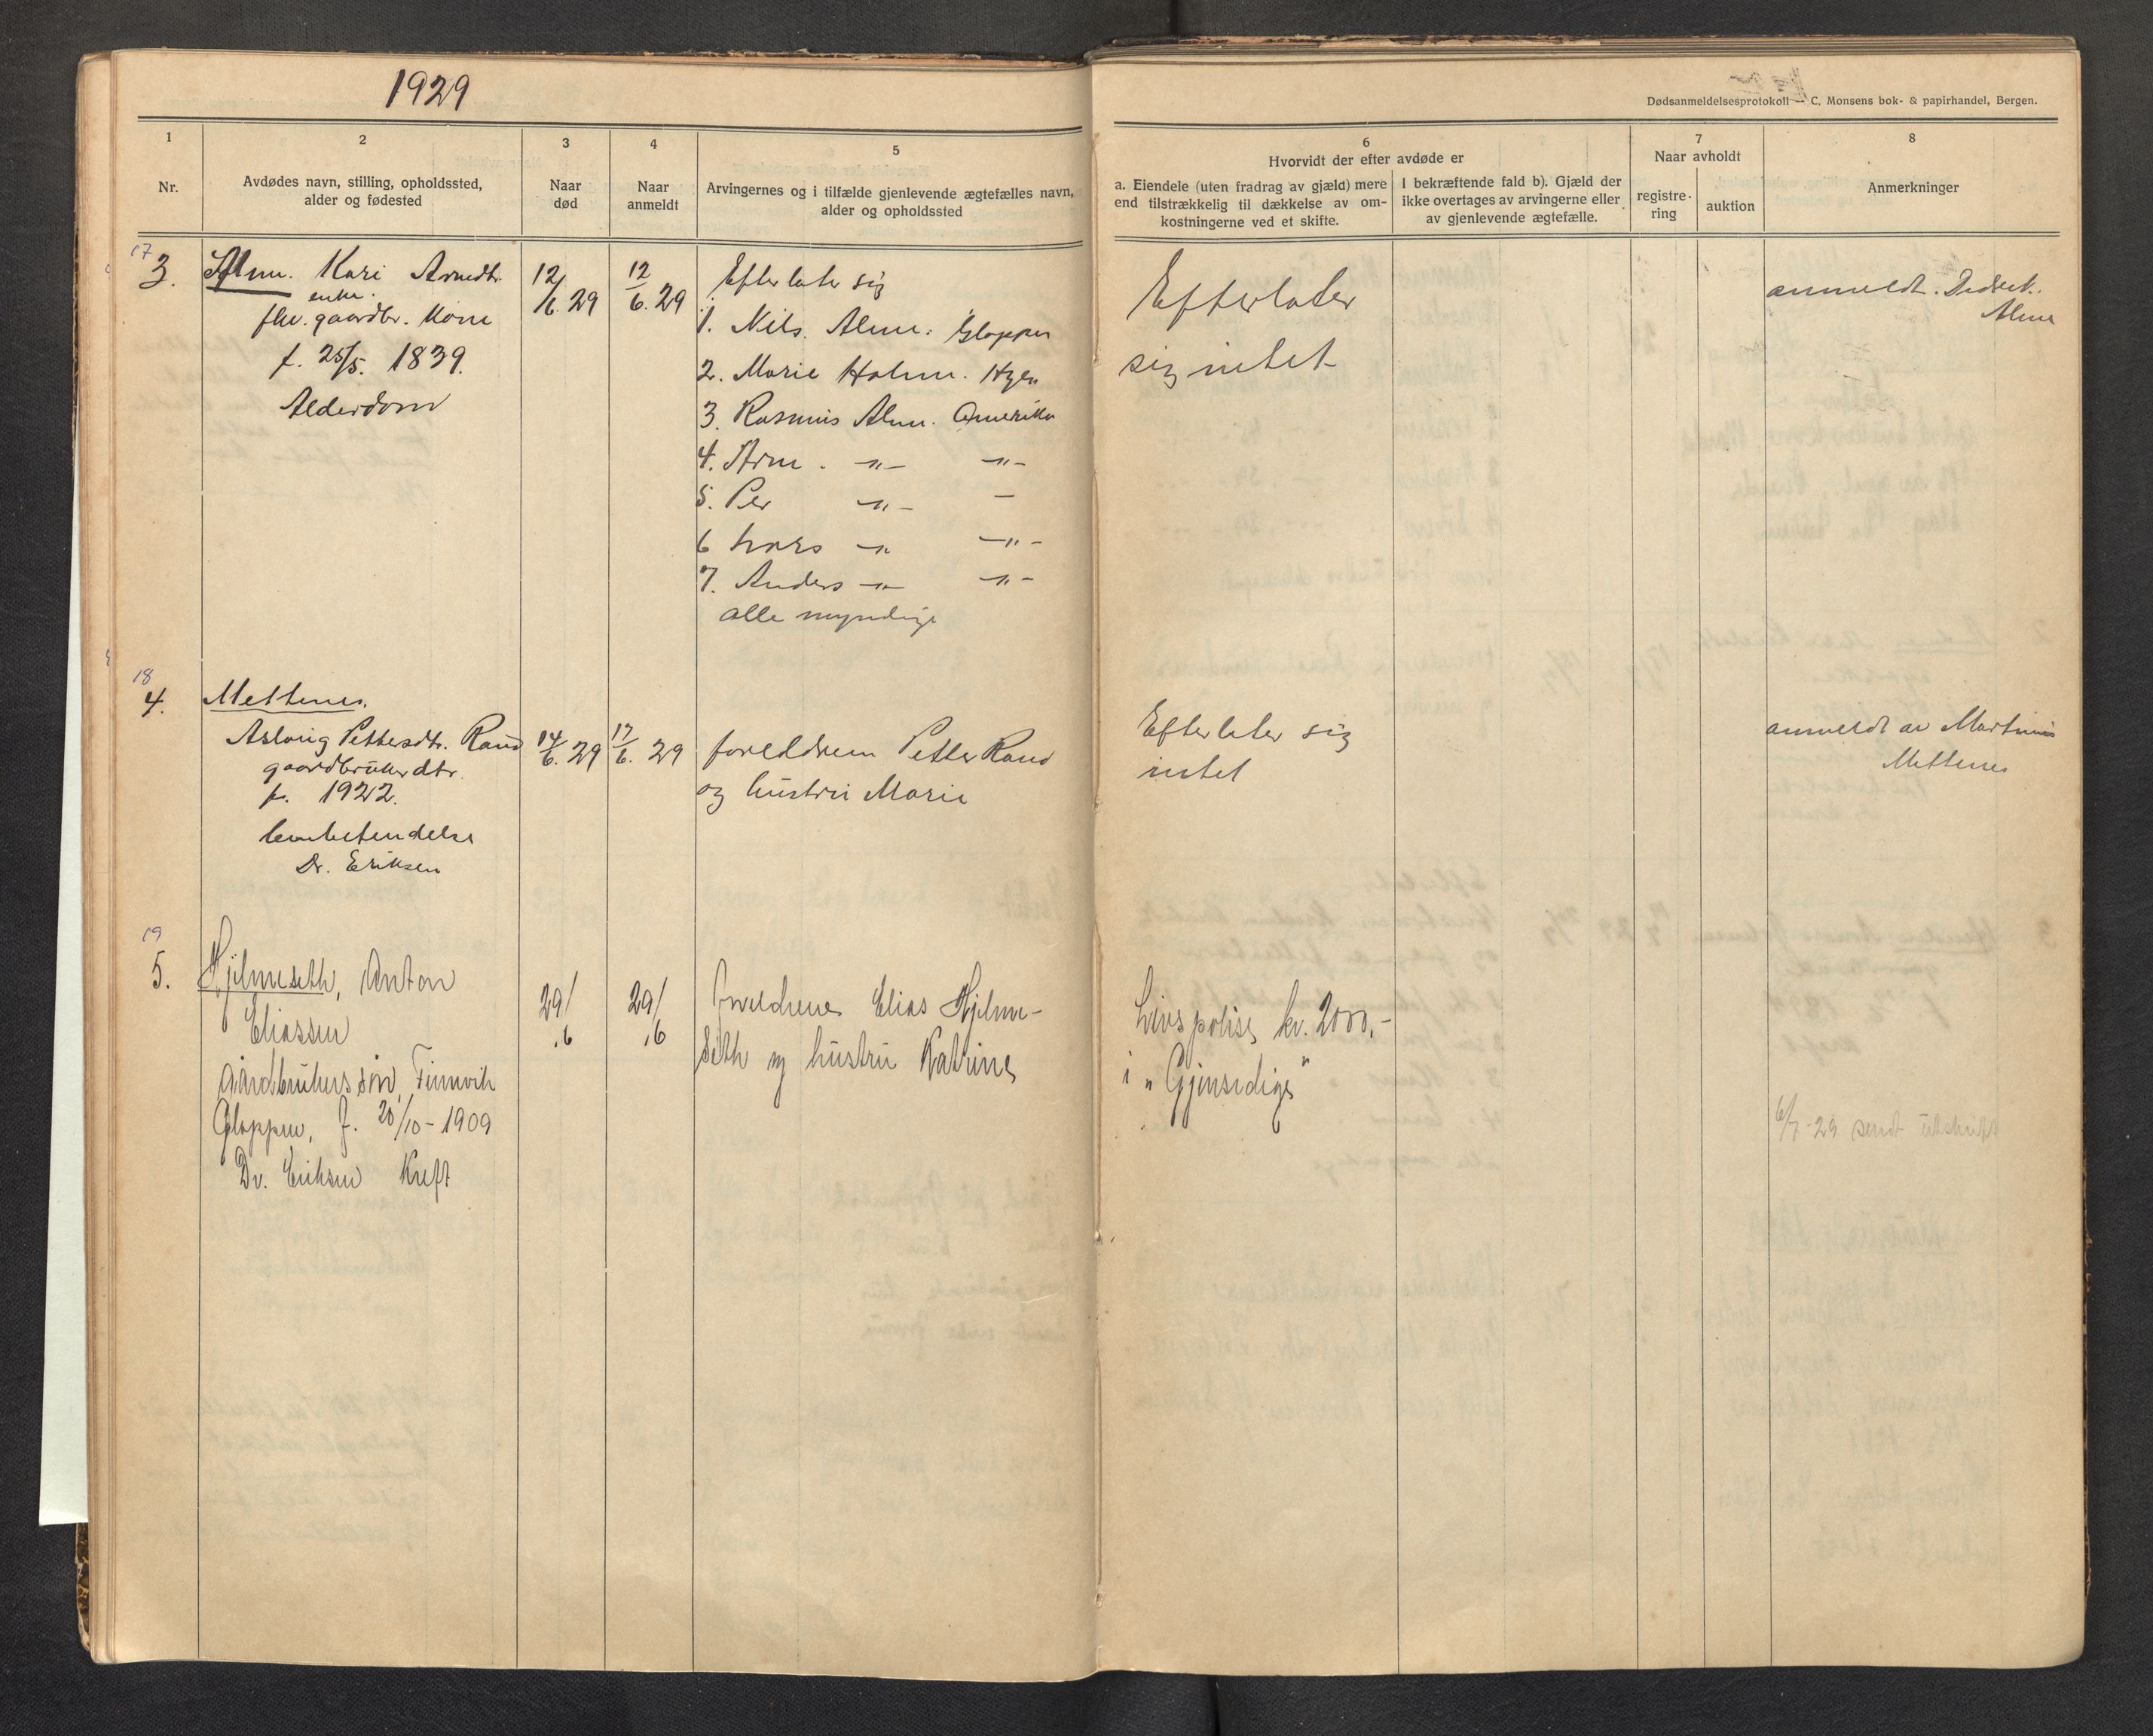 1929
Dødsanmeldelsesprotokoll — C. Monsens bok- & papirhandel, Bergen.
1 2 3 4 5 6 7 8
Nr.
Avdødes navn, stilling, opholdssted,
alder og fødested
Naar
død
Naar
anmeldt
Arvingernes og i tilfælde gjenlevende ægtefælles navn,
alder og opholdssted
Hvorvidt der efter avdøde er
a. Eiendele (uten fradrag av gjæld) mere
end tilstrækkelig til dækkelse av om-
kostningerne ved et skifte.
I bekræftende fald b). Gjæld der
ikke overtages av arvingerne eller
av gjenlevende ægtefælle.
Naar avholdt
registre-
ring
auktion
Anmerkninger
17
3.
Alme. Kari Arnedtr.
enke.
fhv. gaardbr. kone
f. 25/5. 1839.
Alderdom
12/6. 29
12/6. 29
Efterlater sig
1. Nils. Alme. Gloppen
2. Marie Holme. Hyen
3. Rasmus Alme. Amerika
4. Arne . -"- -"-
5. Per -"- -
6 Lars -"- -"-
7. Anders -"- -"-
alle myndige
Efterlater
sig intet
anmeldt. Didrik.
Alme
18
4.
Mettenes.
Aslaug Pettersdtr. Rand
gaardbruker dtr.
f. 1922.
Dr. Eriksen
14/6. 29
17/6. 29
foreldrene Petter Rand
og hustru Marie
Efterlater sig
intet
anmeldt av Martinus
Mettenes
19
5.
Hjelmeseth, Anton
Eliassen
Gardbrukers søn, Finnvik
Gloppen, f. 20/10-1909
Dr. Eriksen Kreft
29/6
29/6
Foreldrene Elias Hjelme-
seth og hustru Katrine
Livspolise kr. 2000,-
i "Gjensidige"
6/7-29 sendt utskrift